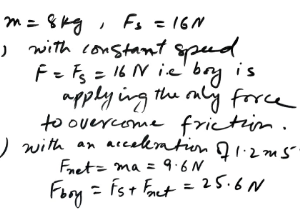 m = 8kg , Fs = 16N
) with constant speed
F = Fs = 16 N i.e boy is
applying the only force
to overcome friction.
) with an acceleration of 1.2 m5
Fnet = ma = 9.6N
Fboy = Fs + Fnet = 25.6 N